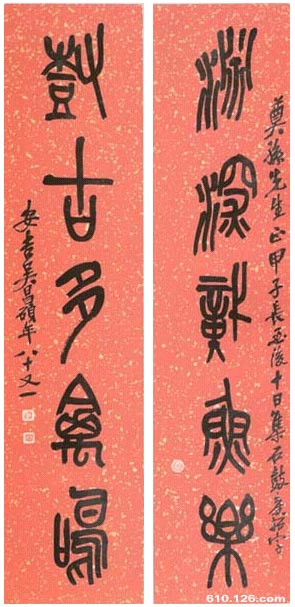 淵深識魚樂
奠孫先生正甲子長至後十日集石鼓字
樹古多禽鳴
安吉吳昌碩年八十又一
610.126.com